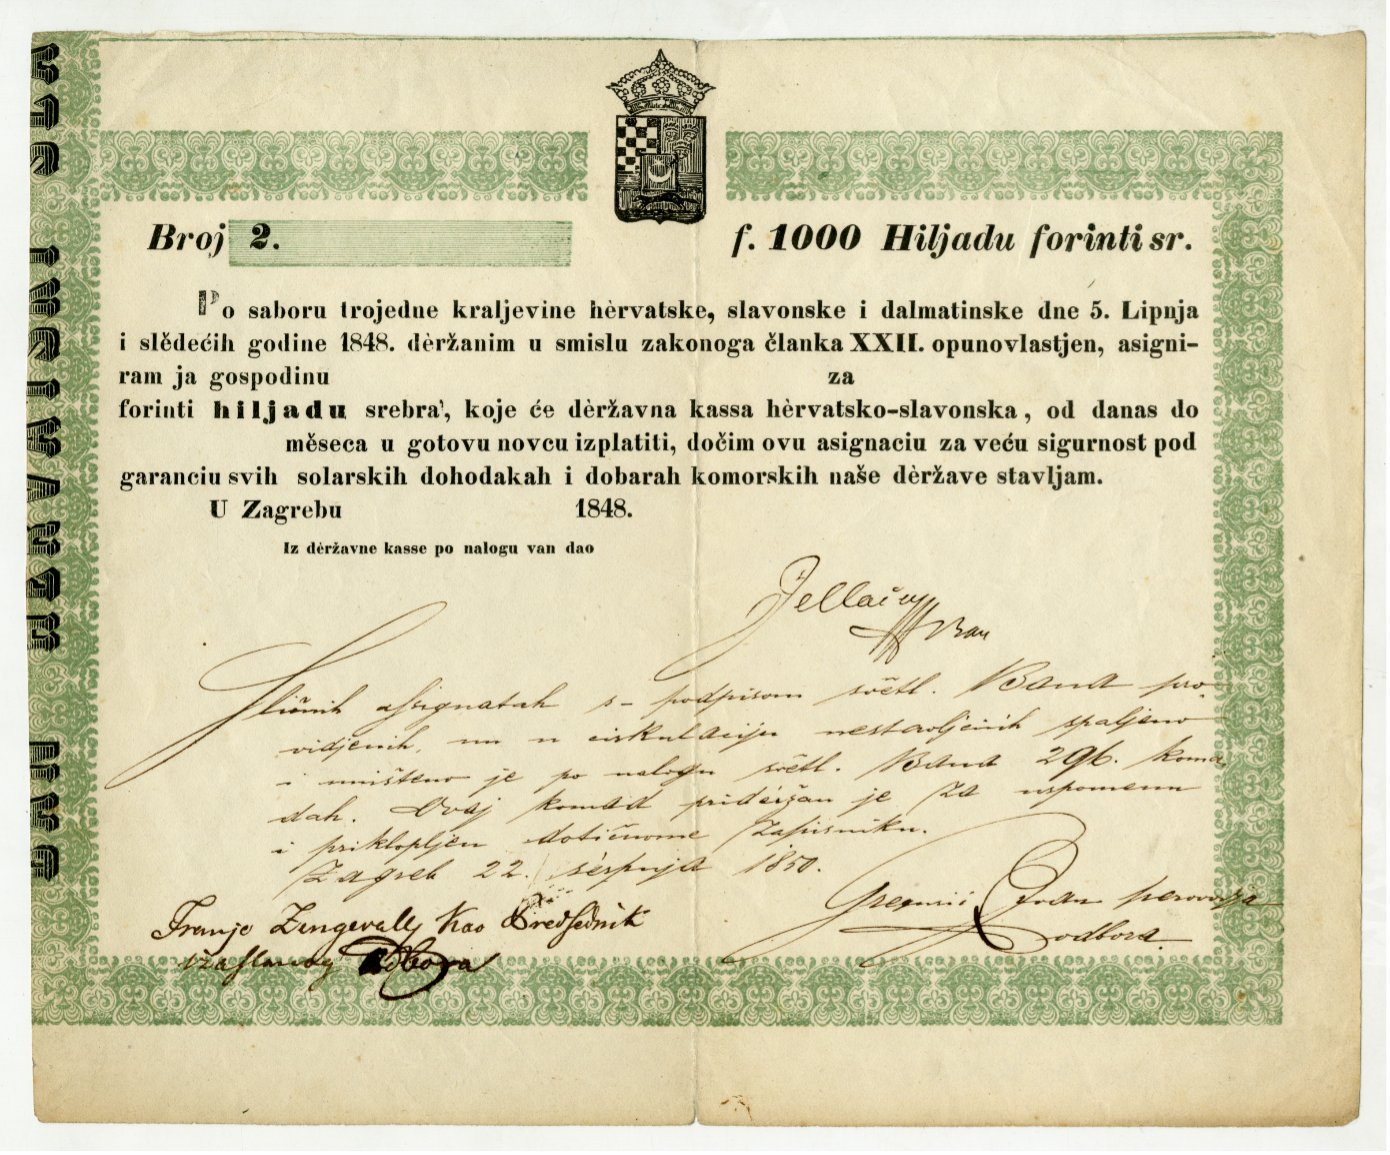 Broj 2.
f. 1000 Hiljadu forinti sr.
Po saboru trojedne kraljevine hèrvatske, slavonske i dalmatinske dne 5. Lipnja
i slědećih godine 1848. dèržanim u smislu zakonoga članka XXII. opunovlastjen, asigni-
ram ja gospodinu za
forinti hiljadu srebra', koje će dèržavna kassa hèrvatsko-slavonska, od danas do
měseca u gotovu novcu izplatiti, dočim ovu asignaciu za veću sigurnost pod
garanciu svih solarskih dohodakah i dobarah komorskih naše dèržave stavljam.
U Zagrebu 1848.
Iz dèržavne kasse po nalogu van dao
Jellačić
Ban
Sličnih assignatah s podpisom světl. Bana pro-
vidjenih, nu u cirkulaciju nestavljenih spaljeno
i uništeno je po nalogu světl. Bana 296. koma
dah. Ovaj komad pridèržan je za uspomenu
i priklopljen dotičnome zapisniku.
Zagreb 22. sèrpnja 1850.
Franjo kao Predsednik
odbora
odbora